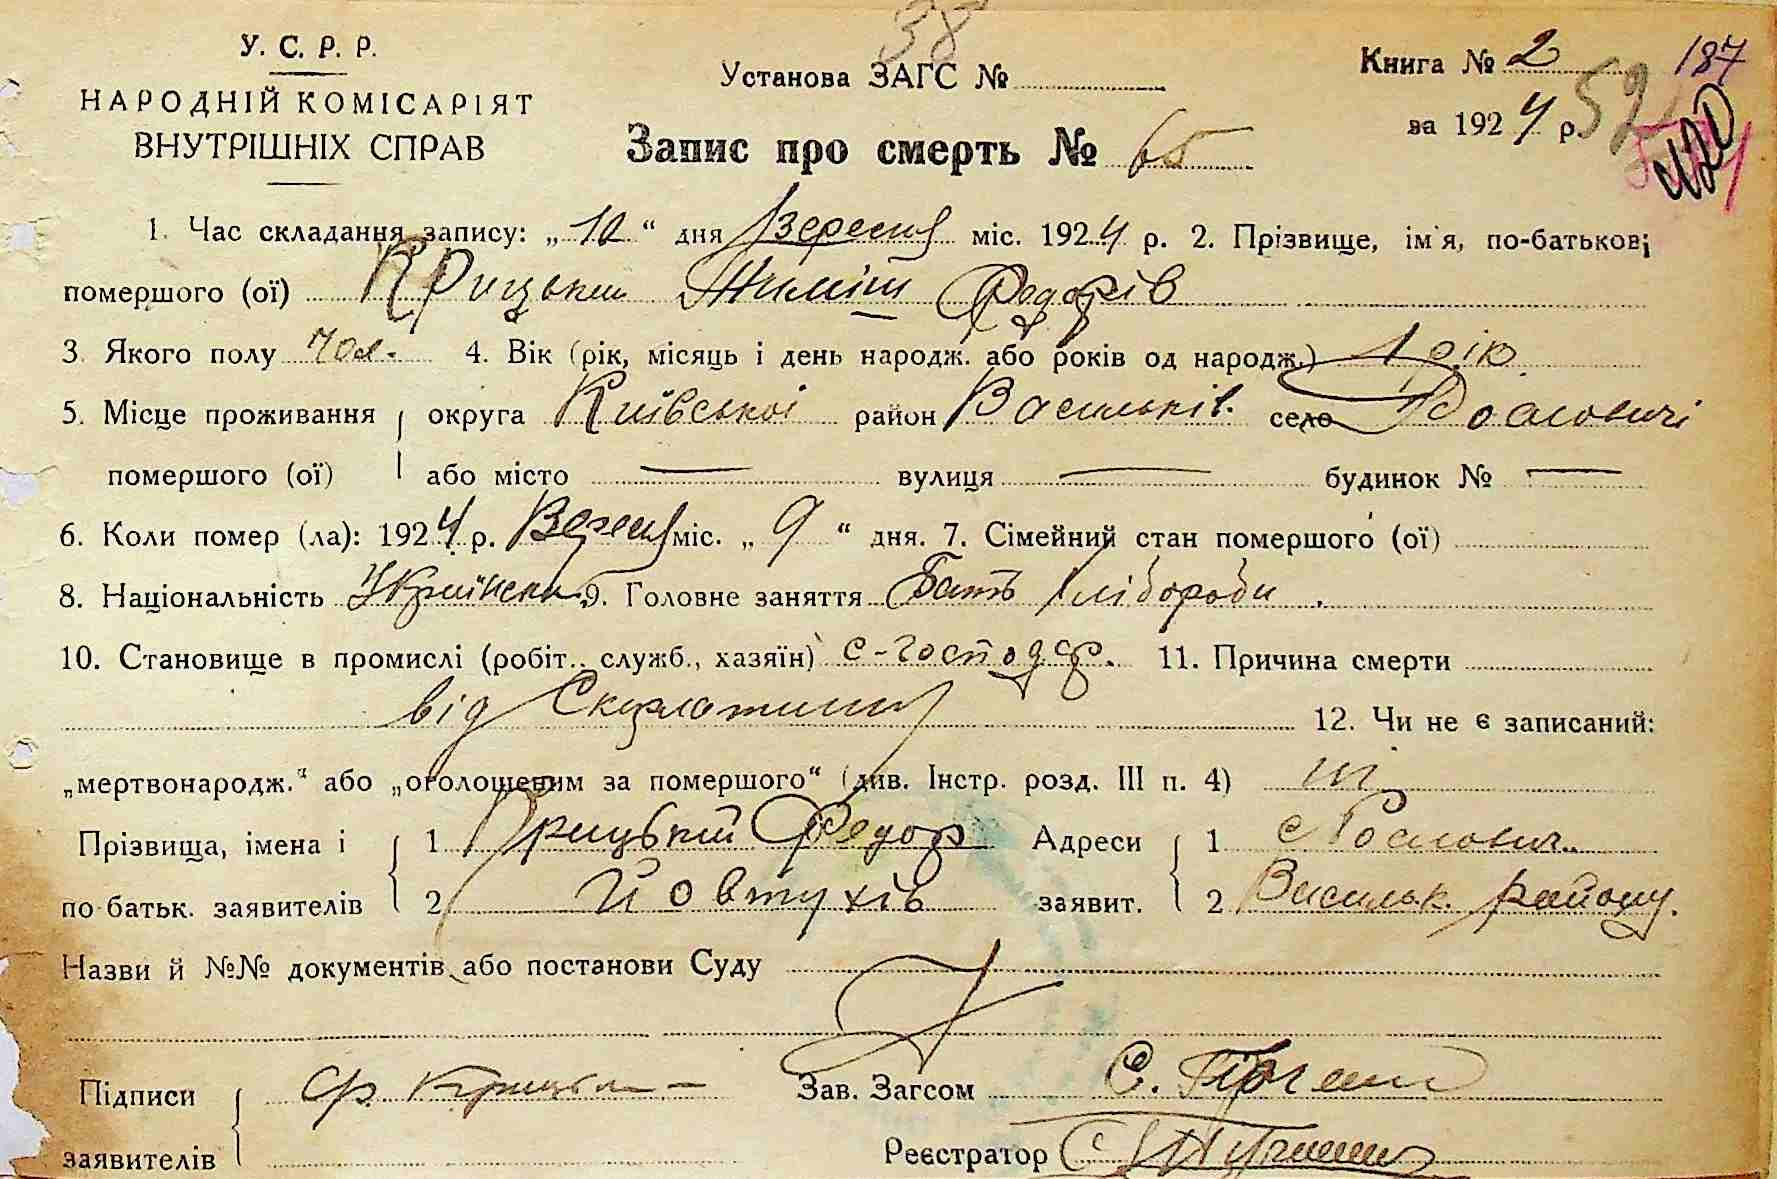 38
У. С. Р. Р.
НАРОДНІЙ КОМІСАРІЯТ
ВНУТРІШНІХ СПРАВ
Установа ЗАГС №
Книга № 2 187
за 1924 р. 52
Запис про смерть № 65
1. Час складання запису: „10“ дня Вересня міс. 1924 р. 2. Прізвище, ім'я, по-батькові
помершого (ої) Крицький Федорів
3. Якого полу чол. 4. Вік (рік, місяць і день народж. або років од народж.) 1 рік
5. Місце проживання округа Київської район Васильків. село
помершого (ої) або місто — вулиця — будинок № —
6. Коли помер (ла): 1924 р. Вересня міс. „9“ дня. 7. Сімейний стан помершого (ої)
8. Національність 9. Головне заняття Бать хлібороби
10. Становище в промислі (робіт., служб., хазяїн) с-господар. 11. Причина смерти
від Скарлатини 12. Чи не є записаний:
„мертвонародж.“ або „оголошеним за помершого“ (див. Інстр. розд. III п. 4) ні
Прізвища, імена і 1 Крицький Федор Адреси 1 с
по батьк. заявителів 2 Йовтухів заявит. 2 Васильк. району.
Назви й №№ документів або постанови Суду
Підписи Ф. Зав. Загсом С.
заявителів Реєстратор